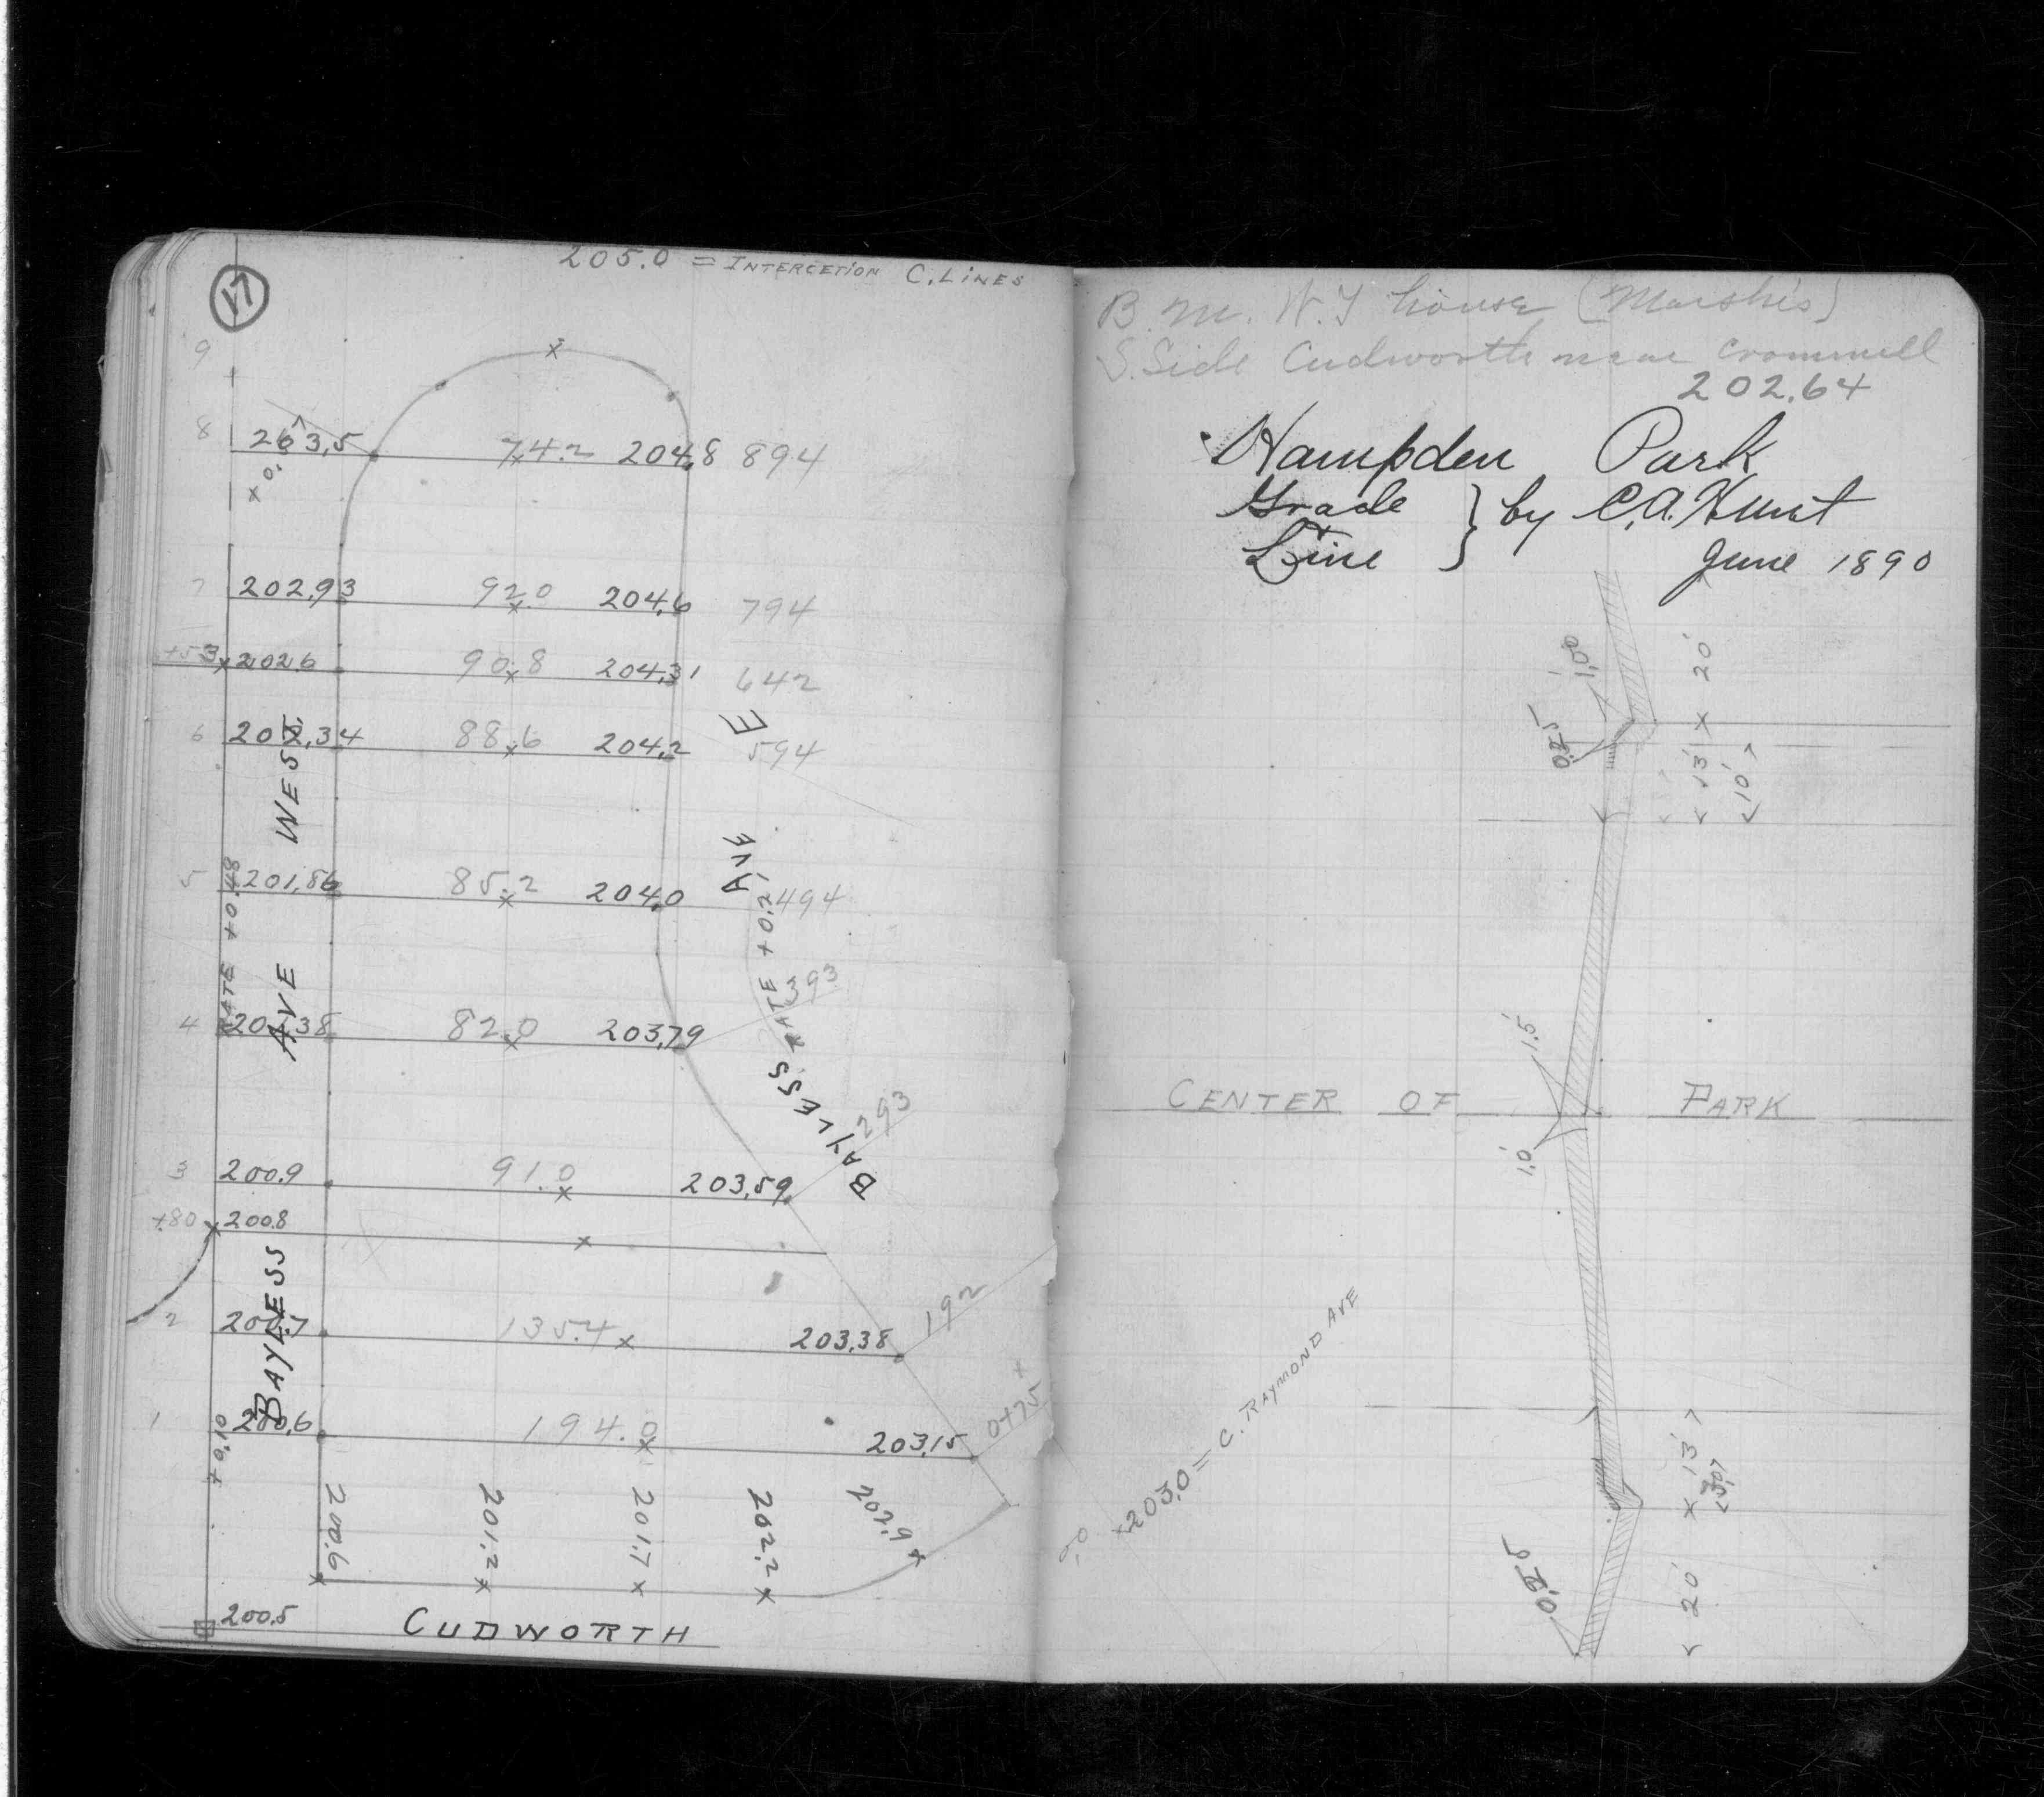 17
205.0 = INTERCETION C. LINES
9
8 203.5 74.2 204.8 894
7 202.93 92.0 204.6 794
+53 202.6 90.8 204.31 642
6 202.34 88.6 204.2 594
5 201.86 85.2 204.0 494
393
4 201.38 82.0 203.79
293
3 200.9 91.0 203.59
+80 200.8
2 200.7 135.4 203.38 192
1 200.6 194.0 203.15 0+75
200.6 201.2 201.7 202.2 202.9
200.5 CUDWORTH
BAYLESS AVE WEST
RATE +0.48
+0.10
BAYLESS AVE E
RATE +0.21
B.M. W.T house (Marshis)
S. Side Cudworth near Cromwell
202.64
Hampden Park
Grade + Line } by C.A. Hunt
June 1890
1.00 20'
0.25 13' 10'
1.5'
CENTER OF PARK
1.0'
203.0 = C. RAYMOND AVE
0.0
13'
20'